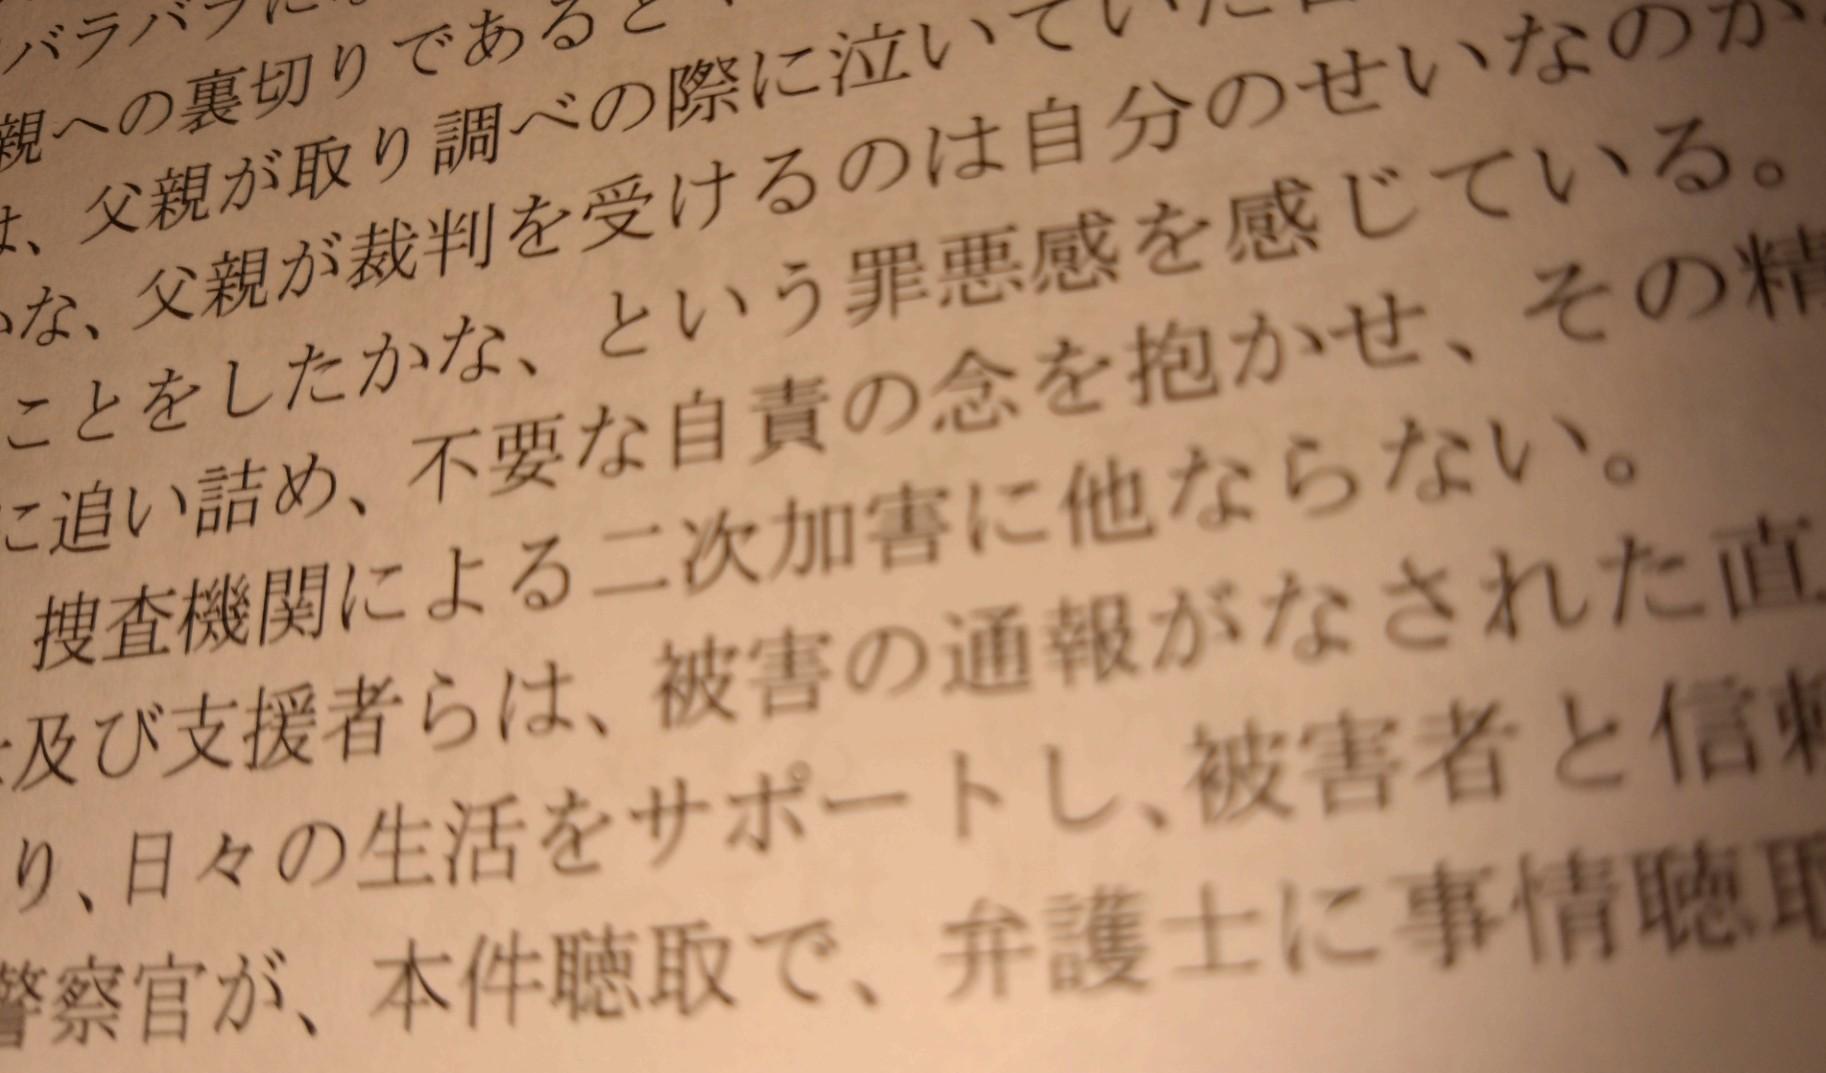 バラバラにな
親への裏切りであると
は、父親が取り調べの際に泣いていた
かな、父親が裁判を受けるのは自分のせいなのか
ことをしたかな、という罪悪感を感じている。
に追い詰め、不要な自責の念を抱かせ、その精
捜査機関による二次加害に他ならない。
及び支援者らは、被害の通報がなされた直
り、日々の生活をサポートし、被害者と信頼
警察官が、本件聴取で、弁護士に事情聴取